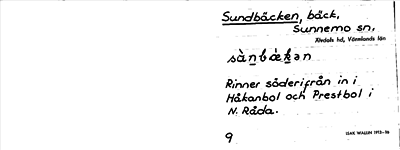 Sundbäcken, bäck,
Sunnemo sn,
Älvdals hd, Värmlands län
sànbǽkən
Rinner söderifrån in i
Håkanbol och Prestbol i
N. Råda.
9
ISAK WALLIN 1913-16